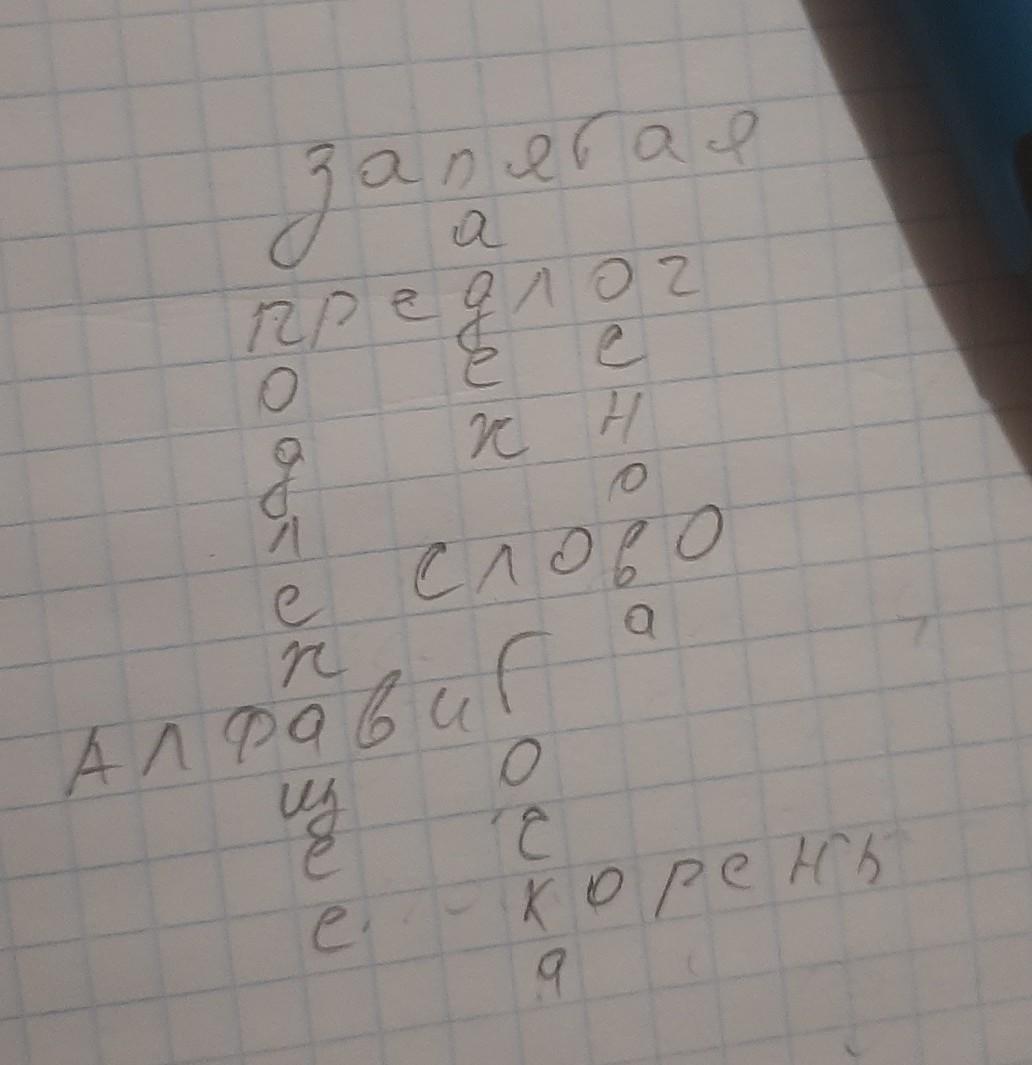 запятая
а
предлог
о е с
д ж н
л о
е слово
ж а
Алфавит
о
щ
е с
е корень
а